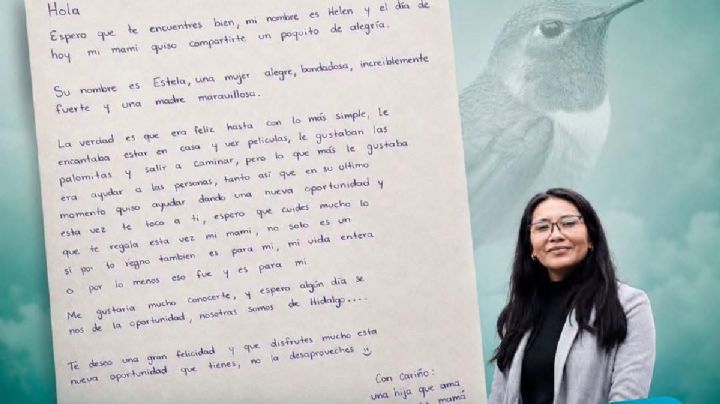 Hola
Espero que te encuentres bien, mi nombre es Helen y el día de
hoy mi mami quiso compartirte un poquito de alegría.
Su nombre es Estela, una mujer alegre, bondadosa, increíblemente
fuerte y una madre maravillosa.
La verdad es que era feliz hasta con lo más simple, le
encantaba estar en casa y ver películas, le gustaban las
palomitas y salir a caminar, pero lo que más le gustaba
era ayudar a las personas, tanto así que en su ultimo
momento quiso ayudar dando una nueva oportunidad y
esta vez te toco a ti, espero que cuides mucho lo
que te regala esta vez mi mami, no solo es un
si por lo regno tambien es para mi, mi vida entera
o por lo menos eso fue y es para mi
Me gustaria mucho conocerte, y espero algún día se
nos de la oportunidad, nosotras somos de Hidalgo....
Te deseo una gran felicidad y que disfrutes mucho esta
nueva oportunidad que tienes, no la desaproveches
Con cariño:
una hija que ama
mamá